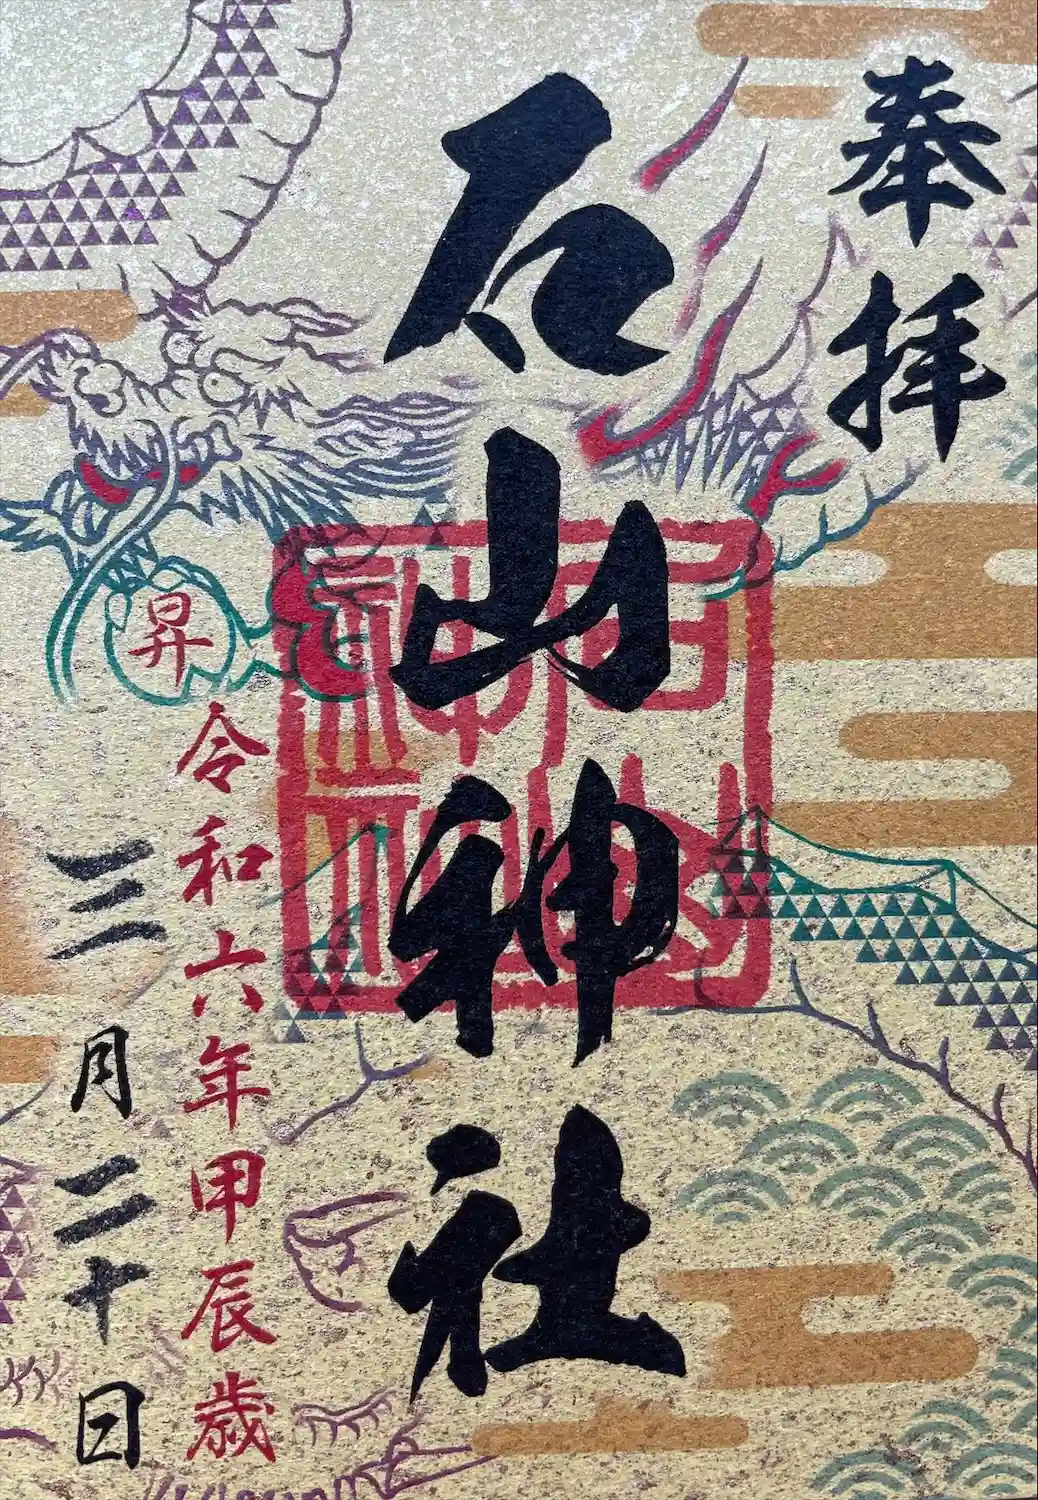 奉拝
石山神社
昇
令和六年甲辰歳
三月二十日